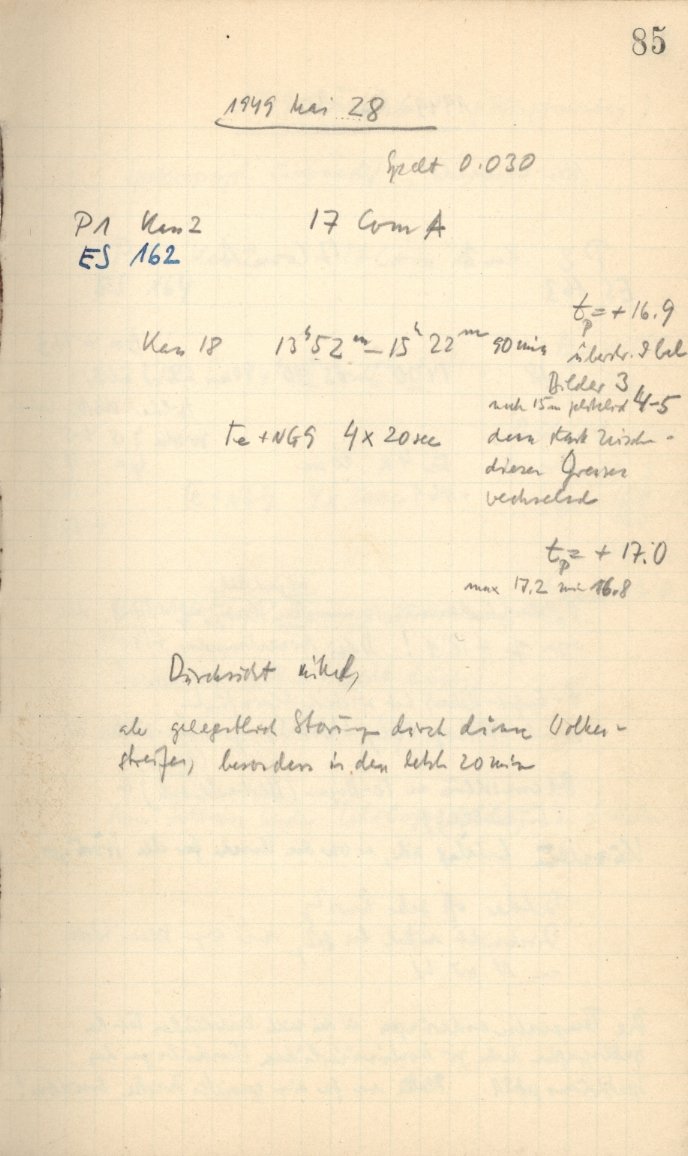 85
1949 Mai 28
Spalt 0.030
P1 Kass 2 17 Com A
ES 162
tp = + 16.9
Kass 18 13h 52m – 15h 22m 90 min
Bilder 3
nach 15m plötzlich 4-5
Fe + NG9 4 x 20 sec dann stark zwischen
diesen Grenzen
wechselnd
tp = + 17.0
max 17.2 min 16.8
Durchsicht mittel,
ab gelegentlich Störung durch dünne Wolken-
streifen, besonders in den letzten 20 min